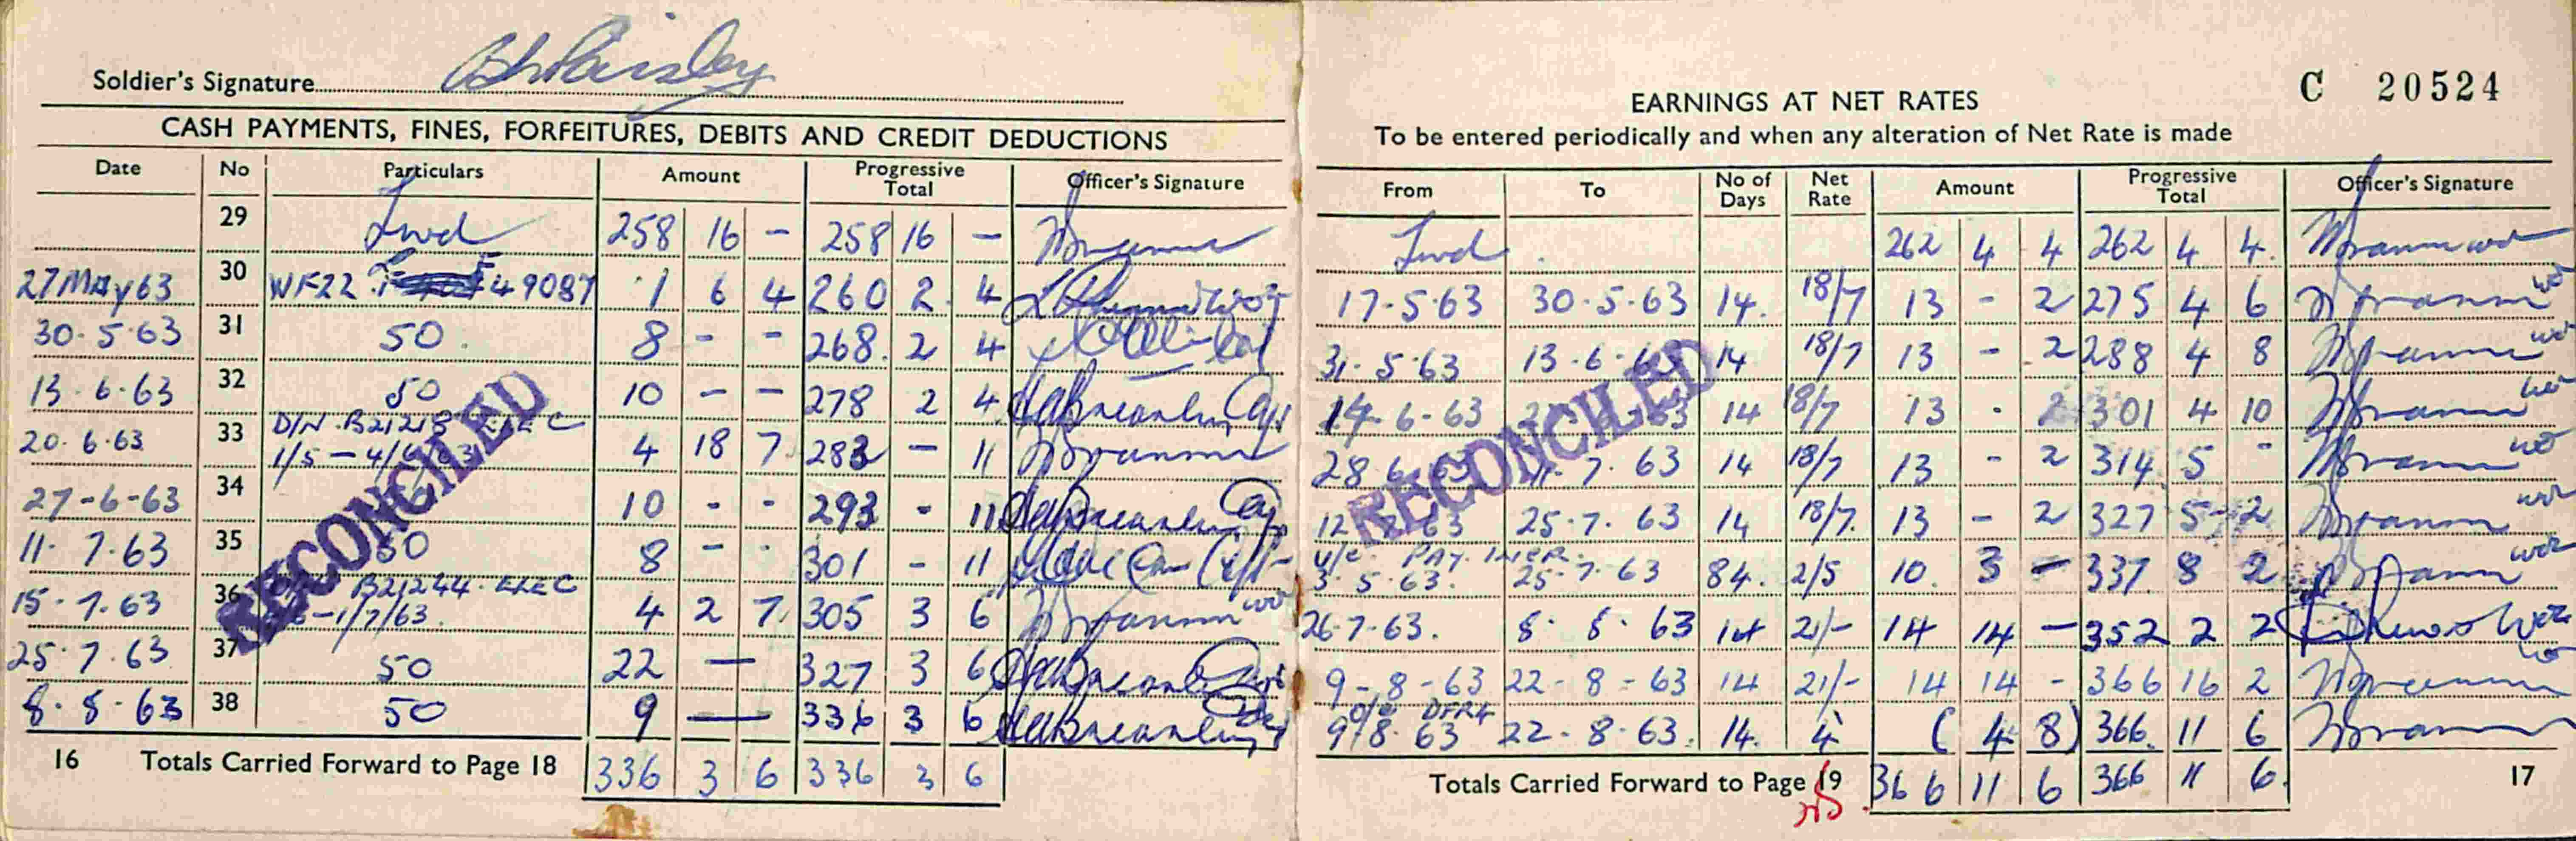 Soldier's Signature
CASH PAYMENTS, FINES, FORFEITURES, DEBITS AND CREDIT DEDUCTIONS
Date No Particulars Amount Progressive Total Officer's Signature
29 Fwd 258 16 - 258 16 -
27 May 63 30 WF22 49087 1 6 4 260 2 4
30.5.63 31 50. 8 - - 268. 2 4
13.6.63 32 50 10 - - 278 2 4
20.6.63 33 D/N B21218 ELEC 4 18 7 283 - 11
1/5 - 4/6/63
27-6-63 34 10 - - 293 - 11
11.7.63 35 50 8 - - 301 - 11
15.7.63 36 B21244. ELEC 4 2 7 305 3 6
-1/7/63.
25.7.63 37 50 22 — 327 3 6
8.8.63 38 50 9 — 336 3 6
RECONCILED
16 Totals Carried Forward to Page 18 336 3 6 336 3 6
C 20524
EARNINGS AT NET RATES
To be entered periodically and when any alteration of Net Rate is made
From To No of Days Net Rate Amount Progressive Total Officer's Signature
Fwd 262 4 4 262 4 4.
17.5.63 30.5.63 14. 18/7 13 - 2 275 4 6
31.5.63 13.6.63 14 18/7 13 - 2 288 4 8
14-6-63 14 18/7 13 - 2 301 4 10
28.6.63 11.7.63 14 18/7 13 - 2 314 5 -
12.7.63 25.7.63 14 18/7. 13 - 2 327 5 2
U/C PAY INCR.
3.5.63. 25.7.63 84. 2/5 10. 3 - 337 8 2
26.7.63. 8.8.63 14 21/- 14 14 - 352 2 2
9-8-63 22-8-63 14 21/- 14 14 - 366 16 2
DFR4
9/8.63 22-8-63. 14. 4 ( 4 8) 366. 11 6
RECONCILED
Totals Carried Forward to Page 19 366 11 6 366 11 6. 17